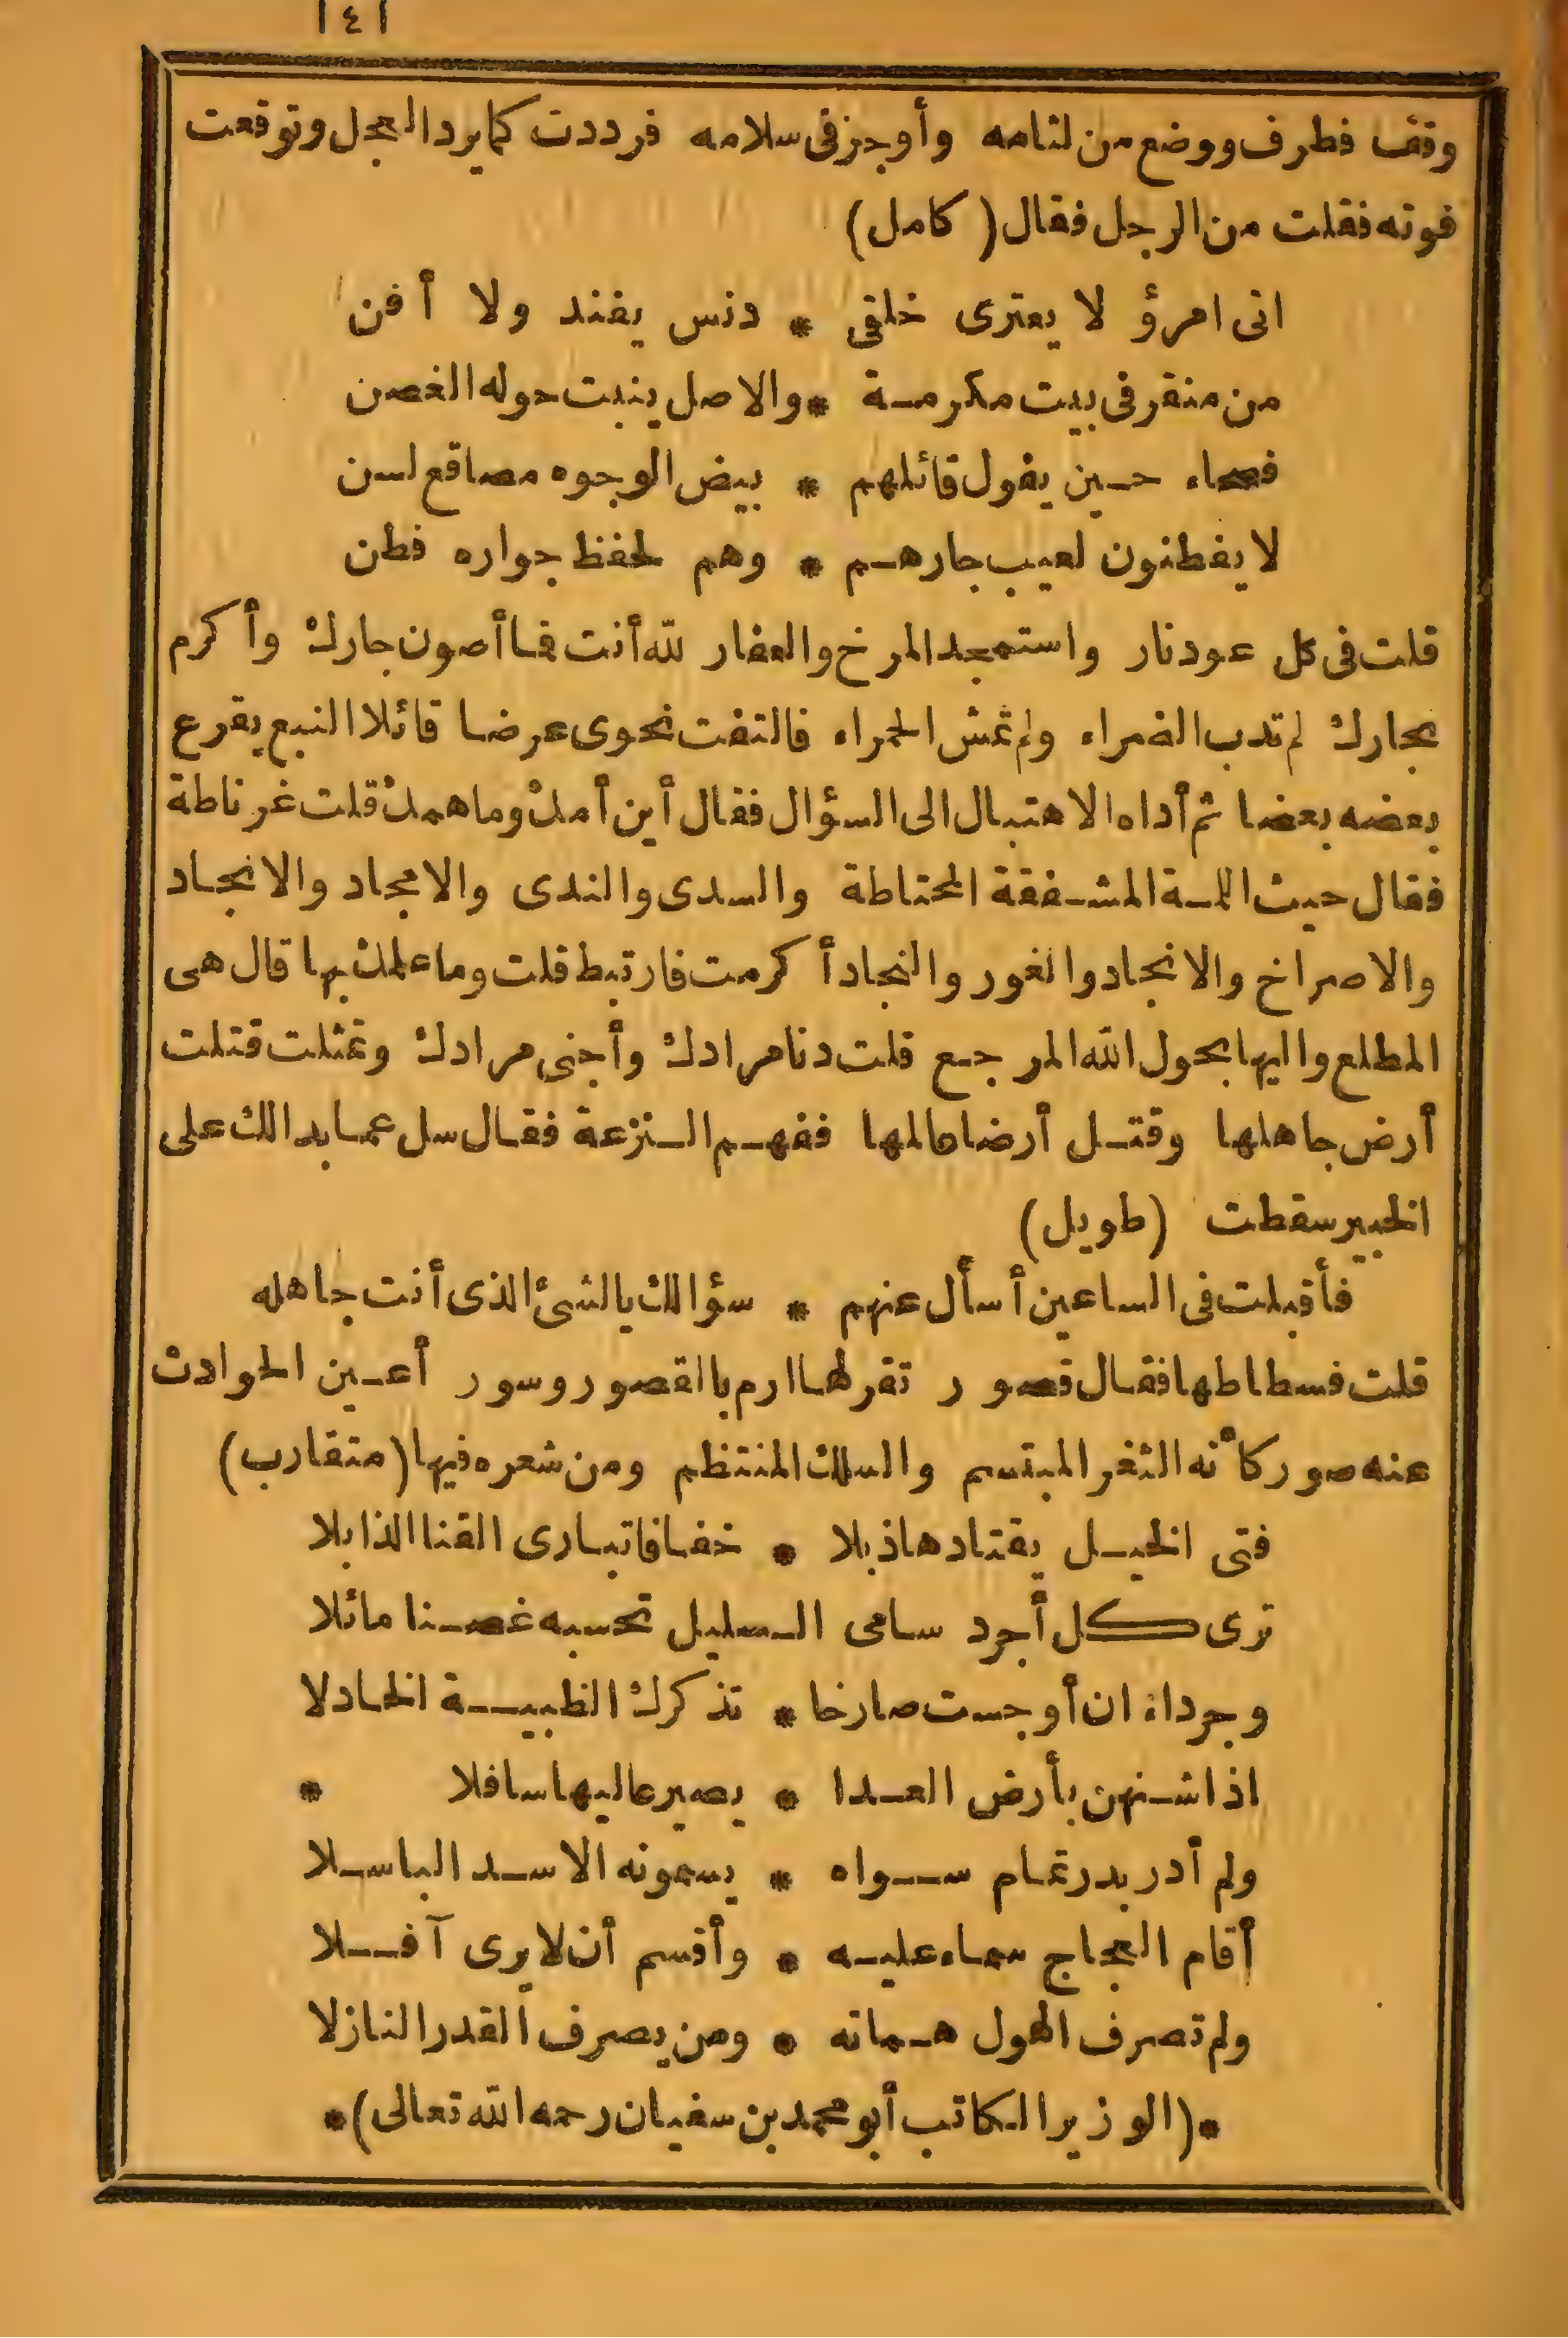 ١٤١
وقف فطرف ووضع من لثامه وأوجز فى سلامه فرددت كما يرد العجل وتوقعت
فوته فقلت من الرجل فقال (كامل)
انى امرؤ لا يعترى خلقى * دنس يفند ولا أفن
من منقر فى بيت مكرمة * والاصل ينبت حوله الغصن
فصحاء حين يقول قائلهم * بيض الوجوه مصاقع لسن
لا يفطنون لعيب جارهم * وهم لحفظ جواره فطن
قلت فى كل عود نار واستمجد المرخ والعفار لله أنت فما أصون جارك وأكرم
نجارك لم تدب الضراء ولم تمش الخمراء فالتفت نحوى عرضا قائلا النبع يقرع
بعضه بعضا ثم أداه الاهتبال الى السؤال فقال أين أملك وما هملك قلت غرناطة
فقال حيث اللمة المشفقة المحتاطة والسدى والندى والامجاد والانجاد
والاصراخ والانجاد والغور والنجاد أكرمت فارتبط قلت وما علمك بها قال هى
المطلع واليها بحول الله المرجع قلت دنا مرادك وأجنى مرادك وتمثلت قتلت
أرض جاهلها وقتل أرضا عالمها ففهم النزعة فقال سل عما بدا لك على
الخبير سقطت (طويل)
فأقبلت فى الساعين أسأل عنهم * سؤالك بالشئ الذى أنت جاهله
قلت فسطاطها فقال قصور تقر لها ارم بالقصور وسور أعين الحوادث
عنه صور كأنه الثغر المبتسم والسلك المنتظم ومن شعره فيها (متقارب)
فتى الخيل يقتادها ذبلا * خفافا تبارى القنا الذابلا
ترى كل أجرد سامى السليل تحسبه غصنا مائلا
وجرداء ان أوجست صارخا * تذكرك الظبية الخاذلا
اذا شنهن بأرض العدا * يصير عاليها سافلا *
ولم أدر بدر تمام سواه * يسمونه الاسد الباسلا
أقام العجاج سماء عليه * وأقسم أن لا يرى آفلا
ولم تصرف الهول هماته * ومن يصرف القدر النازلا
*(الوزير الكاتب أبو محمد بن سفيان رحمه الله تعالى)*